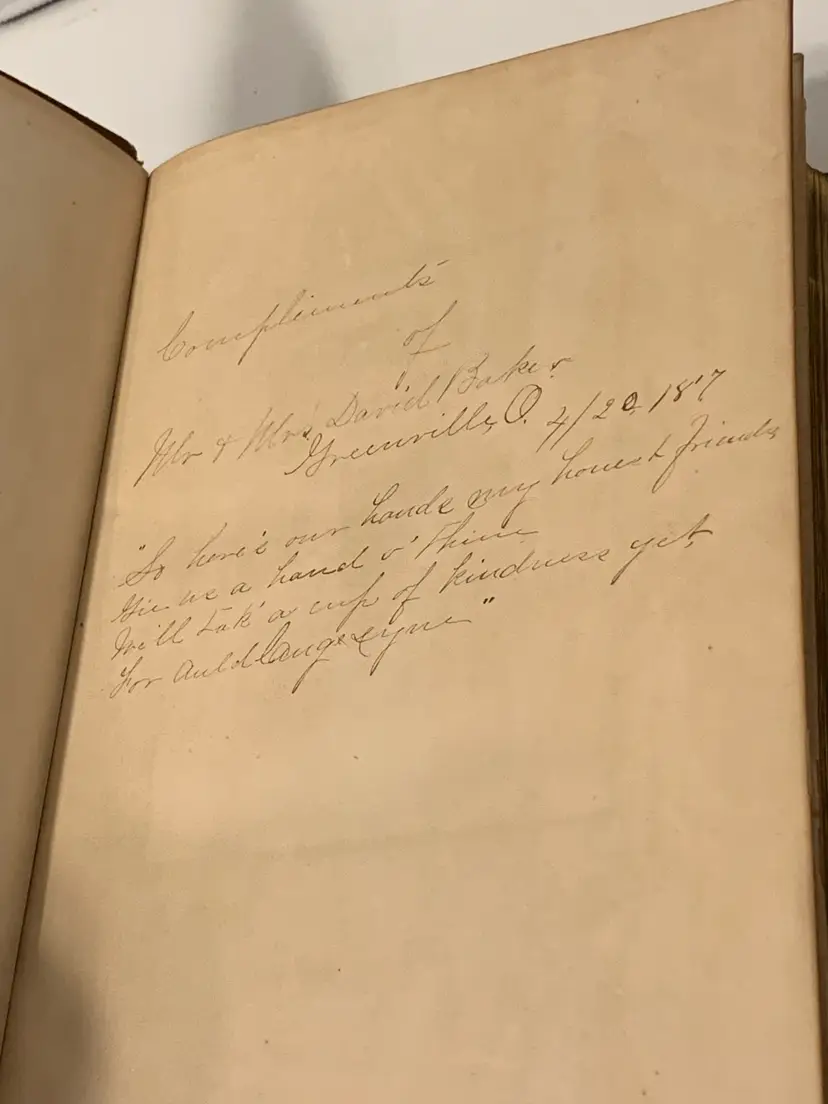 Compliments
of
Mr & Mrs David Baker
Greenville, O. 4/20, 18'7
"So here's our hands my honest friends
Gie us a hand o' thine
We'll tak' a cup of kindness yet
For auld lang syne"